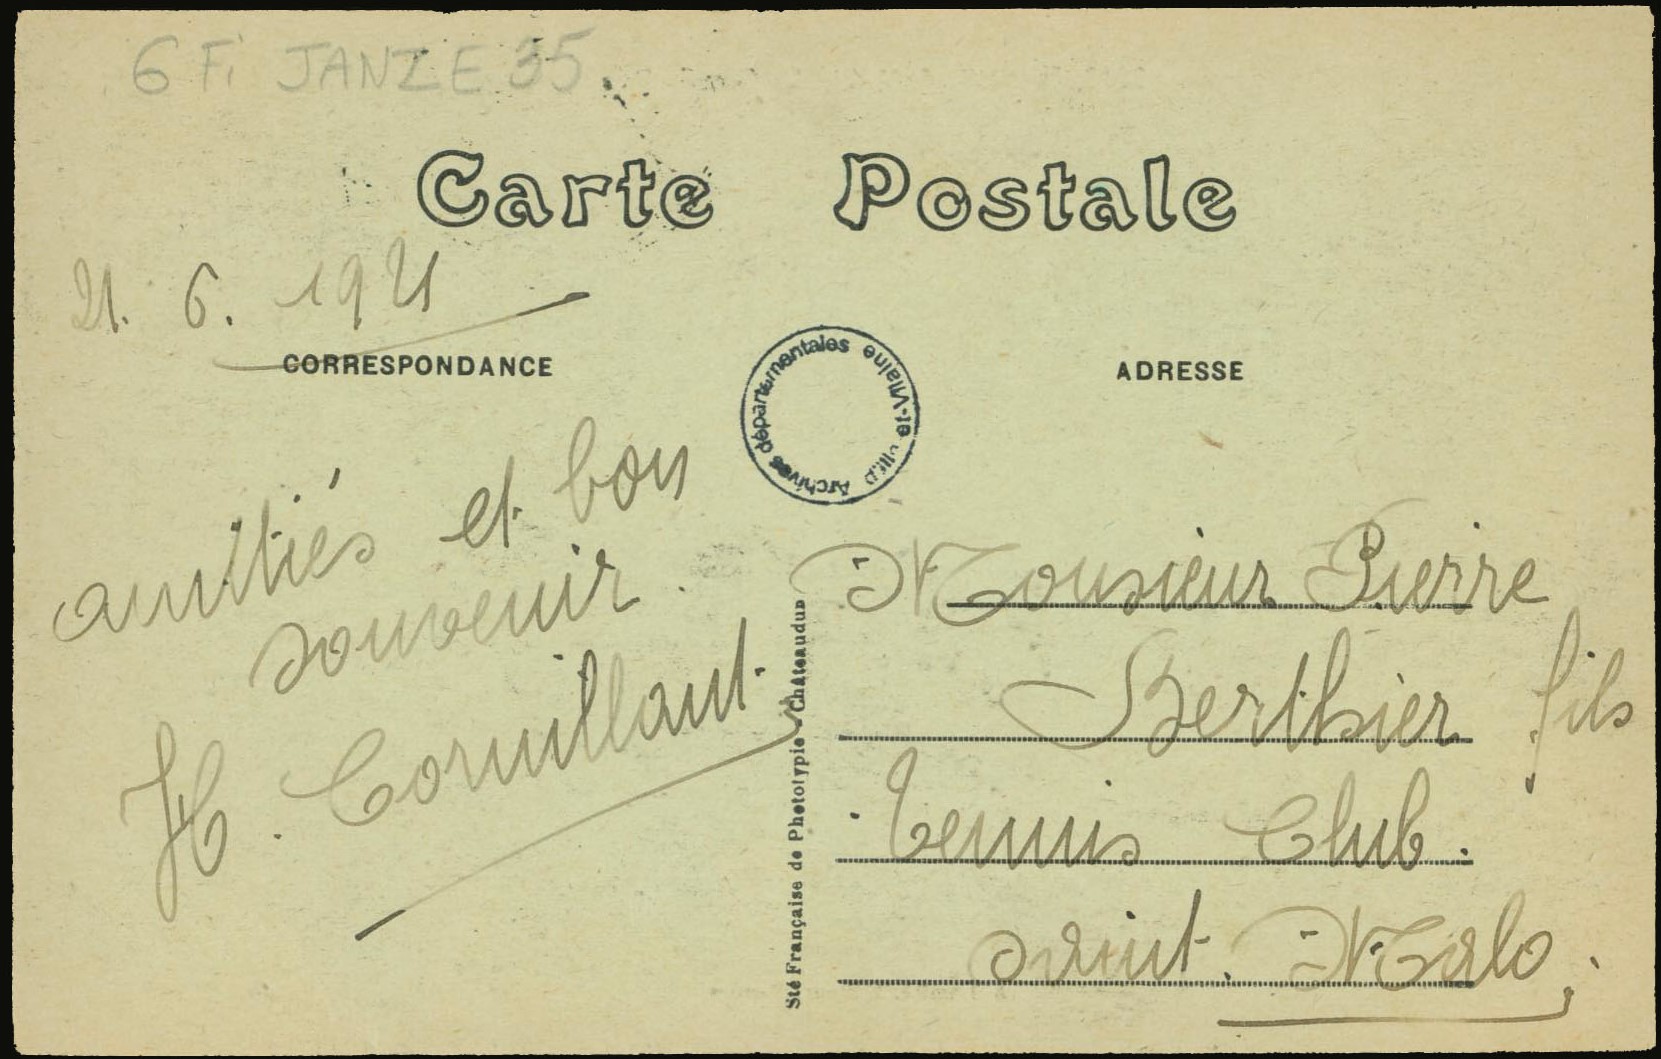 6 Fi JANZE 35
Carte Postale
21. 6. 1921
CORRESPONDANCE
amitiés et bon
souvenir.
H. Cornillaut.
Archives départementales d'Ille-et-Vilaine
Sté Française de Phototypie - Chateaudun
ADRESSE
Monsieur Pierre
Berthier fils
Tennis Club.
Saint. Malo.